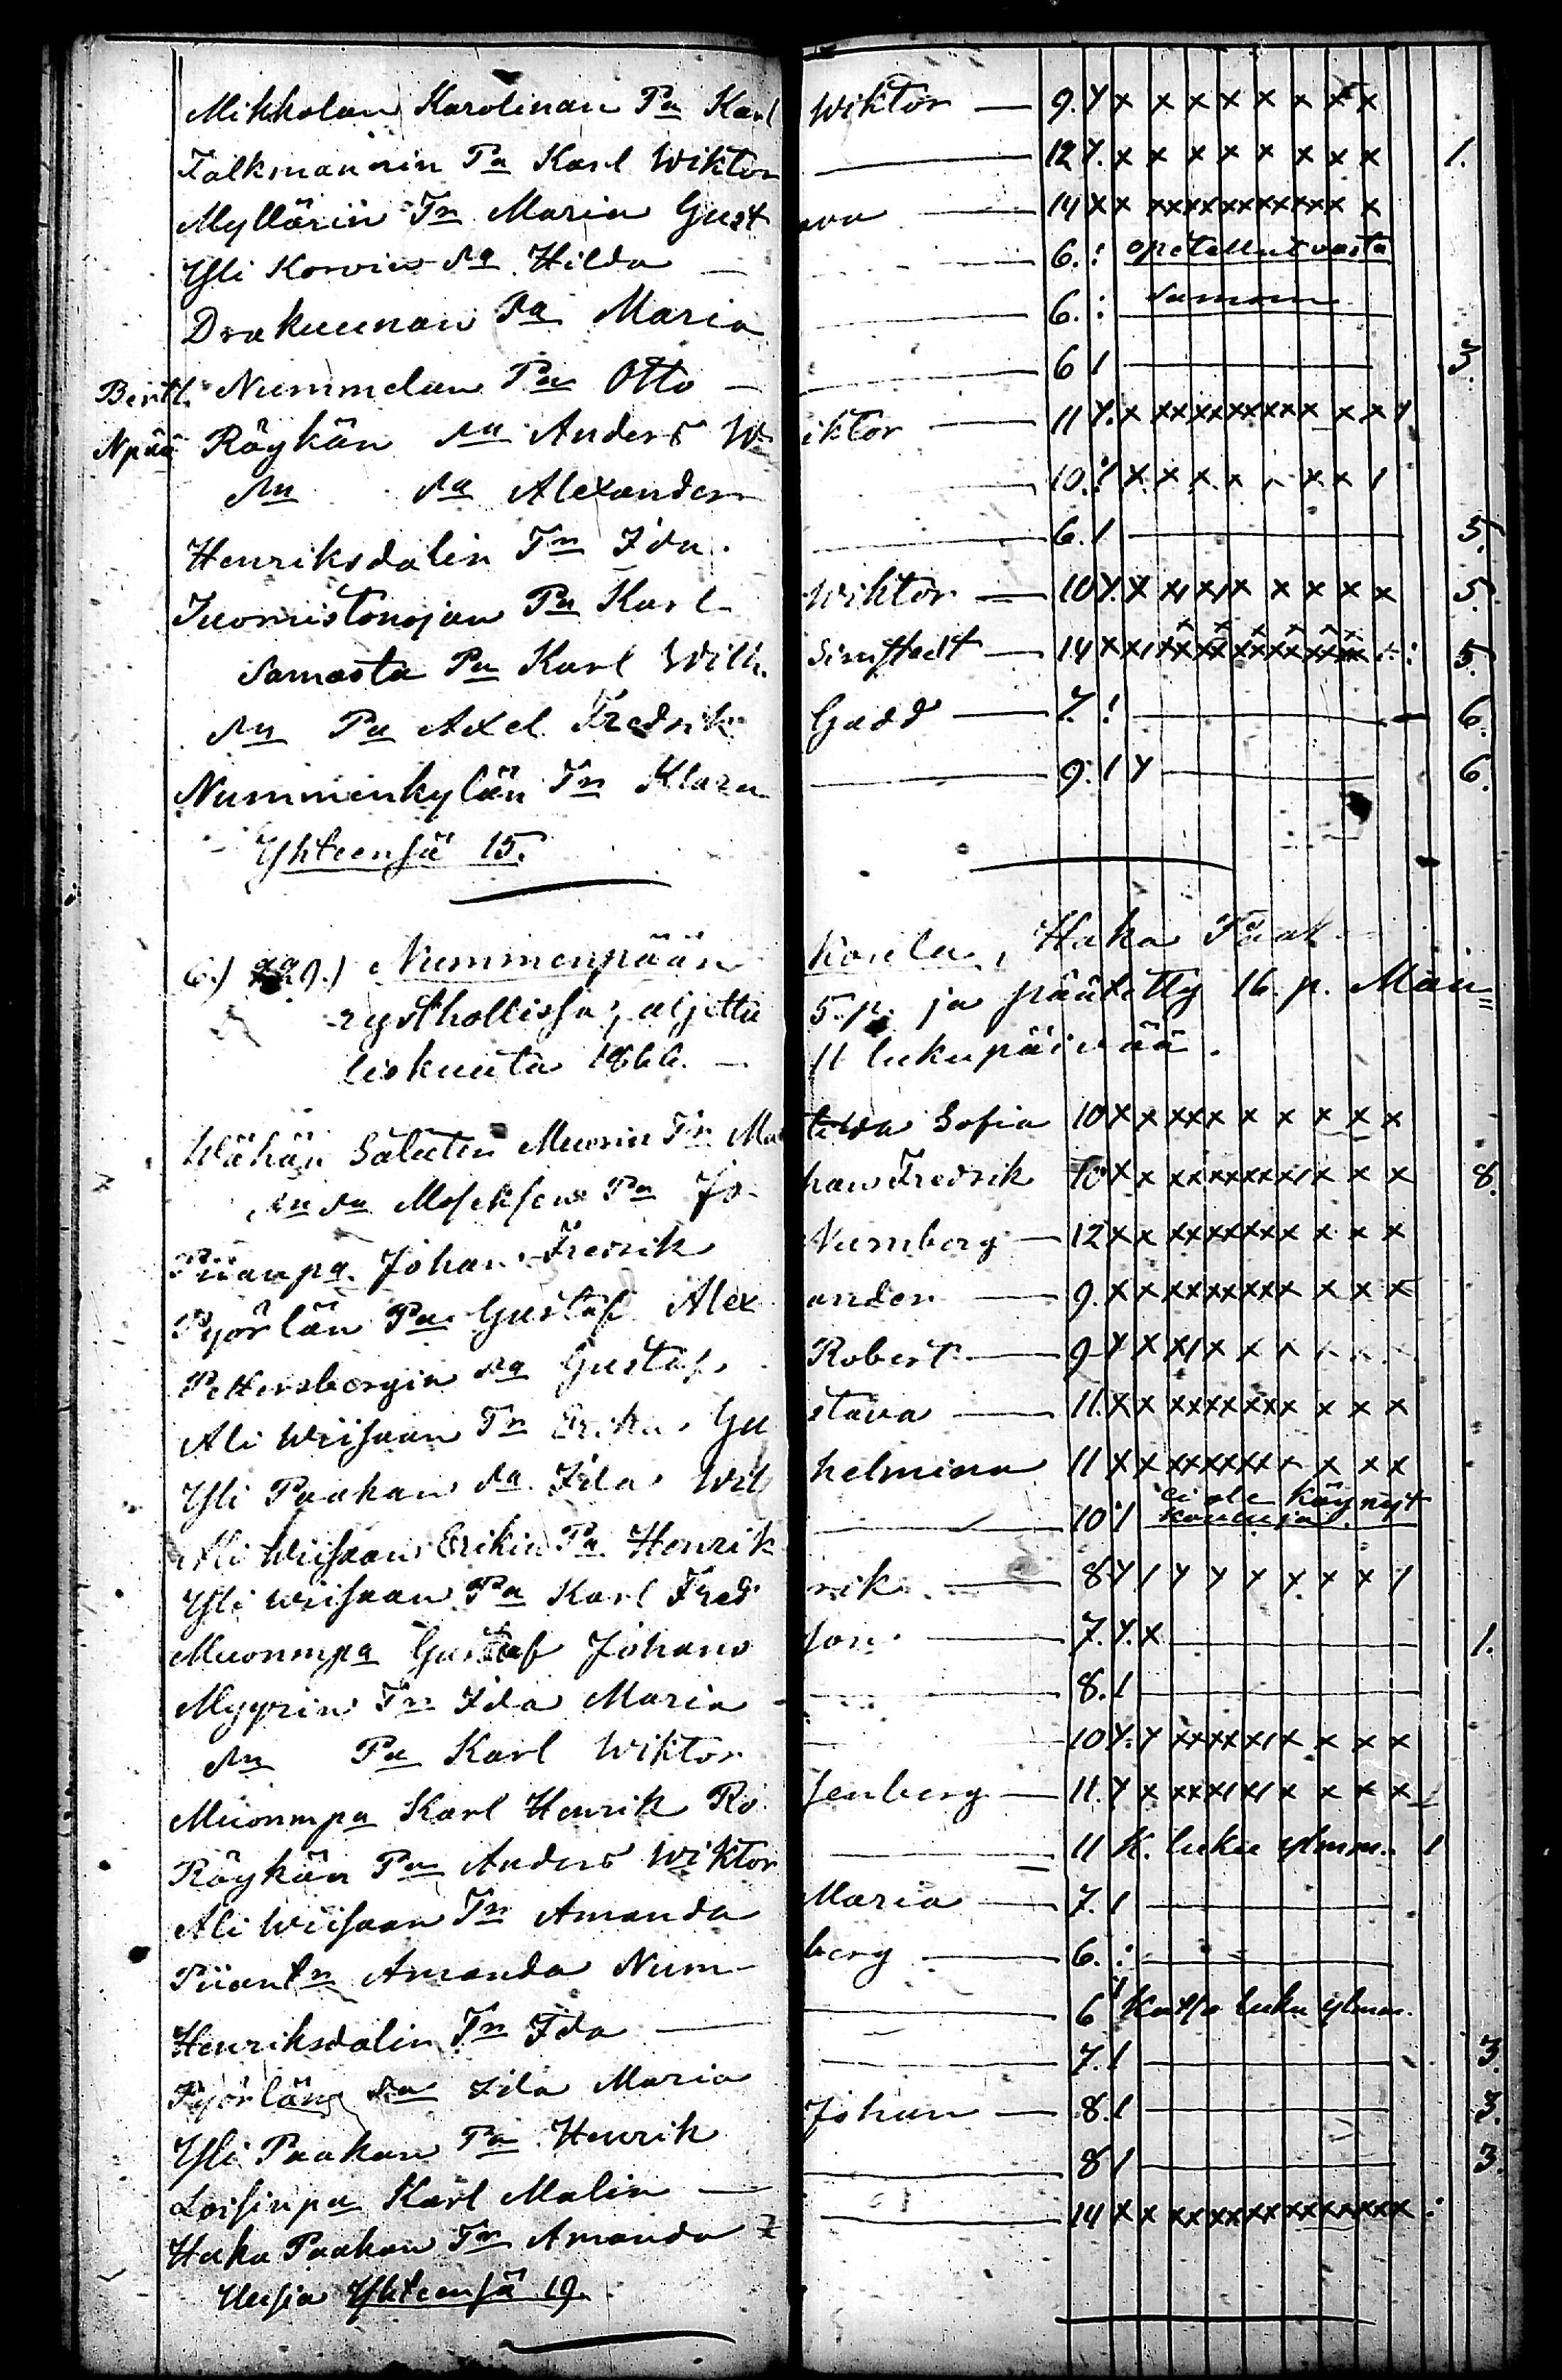 Mikkolan Karolinan Pa Karl Wiktor — 9. Y x x x x x x x x x
Falkmannin Pa Karl Wiktor — 12 Y. x x x x x x x x 1.
Myllärin Tr. Maria Gustava — 14 x x xxxxxxxxxxx x
Yli Korvin sa Hilda — 6. : opetellut vasta
Drakuunan sa Maria — 6. : samoin
Bertl. Nummelan Pa Otto — 6 / — 3.
Npää Röykän sa Anders Wiktor — 11 Y. x xxxxxxxxx x x Y
sn sa Alexander — 10. / x x x x x x /
Henriksdalin Tr Ida. — 6. / — 5.
Tuomistonojan Pa Karl Wiktor — 10 Y. x x/ x/ x x x x x 5.
Samasta Pa Karl Wilh. Simstedt — 14 x x/ xxxxxxxxxx : 5.
sn Pa Axel Fredrik Gadd — 7. ! — 6.
Nummenkylän Tr Klara — 9. / Y — 6.
Yhteensä 15.
6.) Nummenpään koulu, Haka Paak
rysthollissa; aljettu 5. p. ja päätetty 16. p. Maa=
liskuuta 1866. — 11 lukupäivää.
Wähän Salutin Muorin Tr Matilda Sofia 10 x x xxx x x x x x
sn sa Pa Johan Fredrik 10 x x xxxxxx/x x x 8.
Piianpa. Johan Fredrik Numberg — 12 x x xxxxxxx x x x
Pyörlän Pa Gustaf Alexander — 9. x x xxxxxxx x x x
Pettersbergin sa Gustaf Robert — 9 Y x x/x x x
Ali Wiisaan Tr Erika Gustava — 11. x x xxxxxxx x x x
Yli Paakan sa Ida Wilhelmina 11 x x xxxxxx x x x
Ali Wiisaan Erikin Pa Henrik — 10 / ei ole käynyt koulussa.
Yli Wiisaan Pa Karl Fredrik — 8 Y / Y Y Y Y x x /
Muonmpa Gustaf Johansson. — 7. Y. x — 1.
Myyrin Tr Ida Maria — 8. /
sn Pa Karl Wiktor — 10 Y. Y xxxx x/x x x x
Muonmpa Karl Henrik Rosenberg — 11. Y x xxx/x/ x x x x
Röykän Pa Anders Wiktor — 11 K. luku ylmm. 1
Ali Wiisaan Tr Amanda Maria — 7. /
Piiantr Amanda Numberg — 6. :
Henriksdalin Tr Ida — 6 / Katso luku ylmm.
Pyörlän sa Ida Maria — 7. / — 3.
Yli Paakan Pa Henrik Johan — 8. / — 3.
Loisinpa Karl Malin — 8 / — 3.
Haka Paakan Tr Amanda — 14 x x xxxxxxxxxxxx :
Uusia Yhteensä 19.